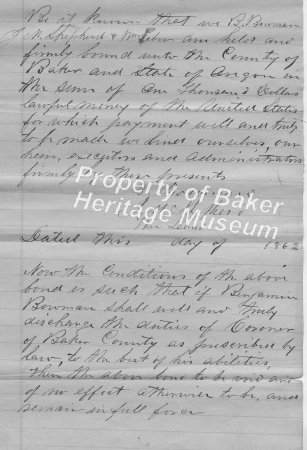 Be it known that we B. Bowman
Shepherd & Wm are held and
firmly bound unto the County of
Baker and State of Oregon in
the sum of One Thousand Dollars
lawful money of the United States
for which payment well and truly
to be made we bind ourselves, our
heirs, executors and Administrators
firmly by these presents
Property of Baker
Heritage Museum
Dated this day of 1862
Now the Conditions of the above
bond is such that if Benjamin
Bowman shall well and truly
discharge the duties of Coroner
of Baker County as prescribed by
law, to the best of his abilities,
then the above bond to be void and
of no effect otherwise to be, and
remain in full force